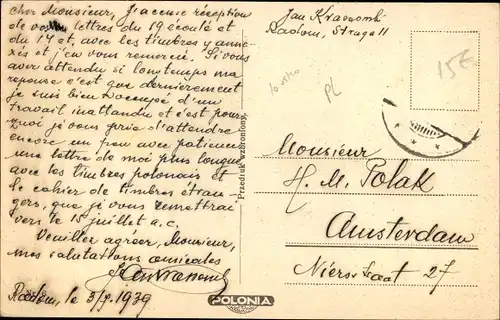 Cher Monsieur, J'accuse réception
de vos lettres du 19 écoulé et
du 14 ct, avec les timbres y anne-
xés et j'en vous remercie. Si vous
avez attendu si longtemps ma
reponse c'est que dernièrement
je suis bien occupé d'un
travail inattendu et c'est pour-
quoi je vous prie d'attendre
encore un peu avec patience
une lettre de moi plus longue
avec les timbres polonais et
le cahier de timbres étran-
gers, que je vous remettrai
vers le 15 juillet a.c.
Veuillez agréer, Monsieur,
mes salutations amicales
Radom, le 1939
Przedruk wzbroniony.
POLONIA
Jan
Radom,
PL
15€
Monsieur
H. M. Polak
Amsterdam
27